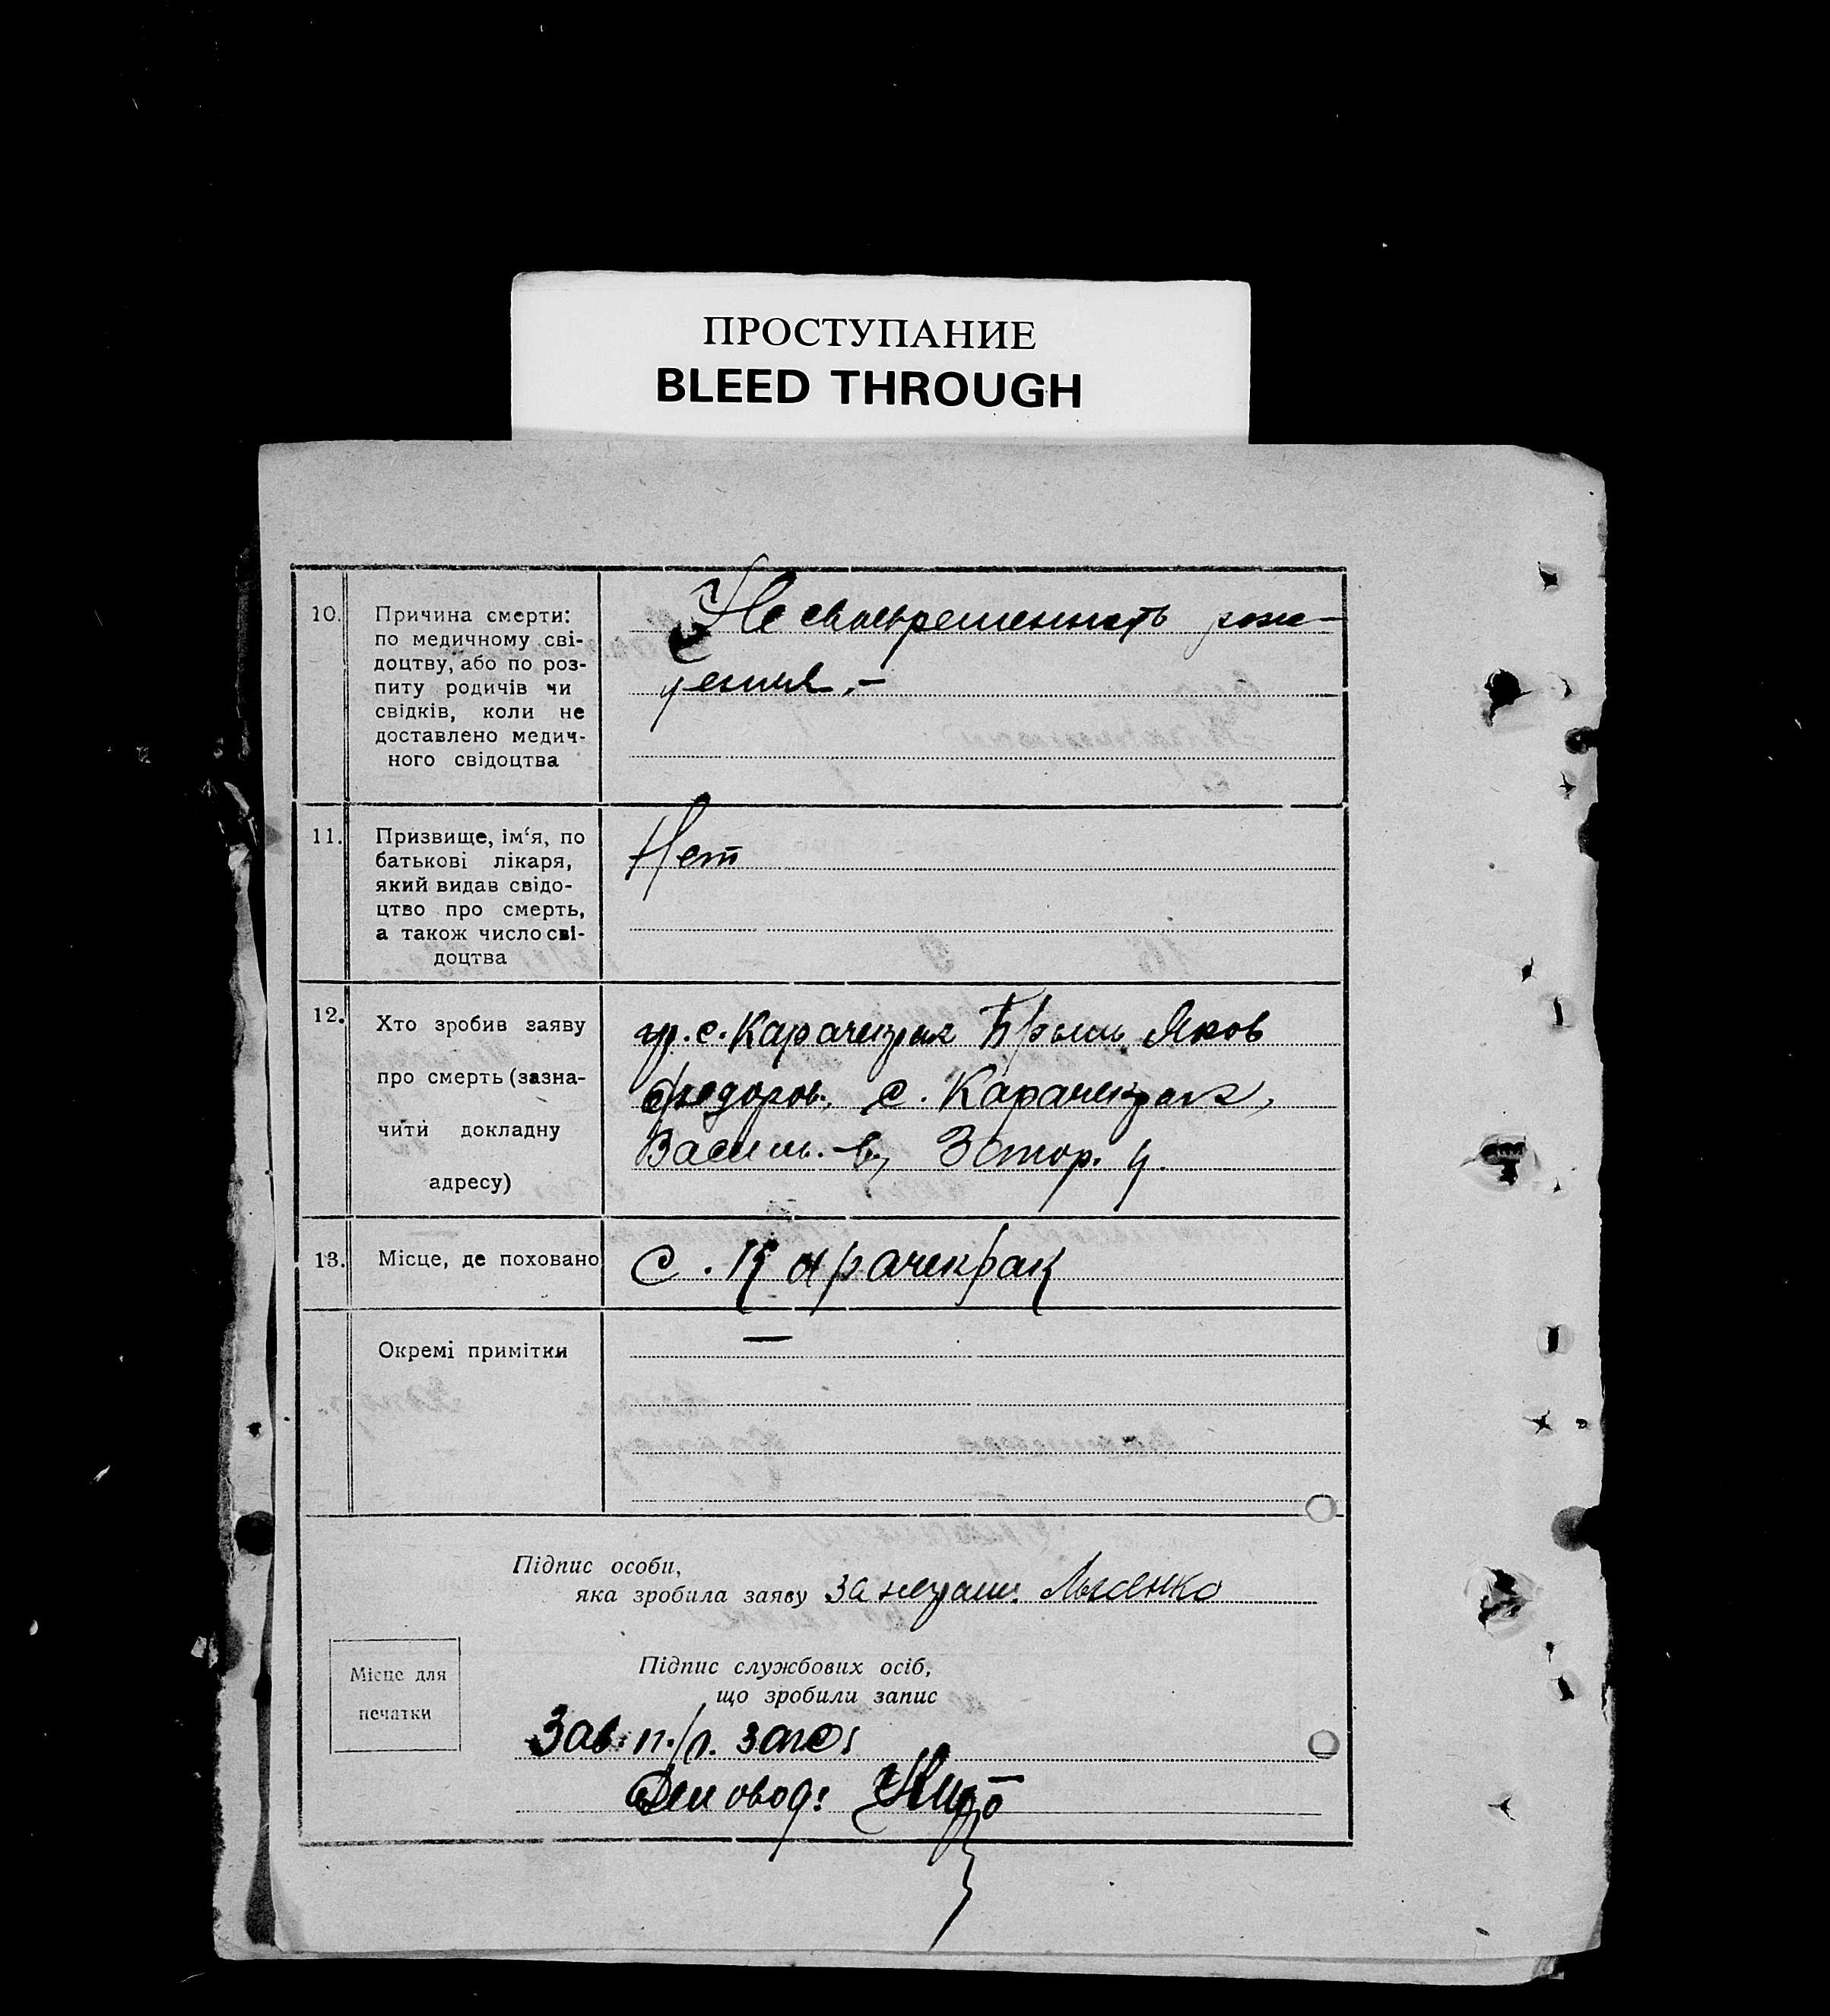 ПРОСТУПАНИЕ
BLEED THROUGH
10.
Причина смерти:
по медичному сві-
доцтву, або по роз-
питу родичів чи
свідків, коли не
доставлено медич-
ного свідоцтва
Несвоевременность рож-
дения.-
11.
Призвище, ім‘я, по
батькові лікаря,
який видав свідо-
цтво про смерть,
а також число сві-
доцтва
Нет
12.
Хто зробив заяву
про смерть (зазна-
чити докладну
адресу)
гр. с. Карачекрак Брыль Яков
Федоров., с. Карачекрак,
Василь.-в,
13.
Місце, де поховано
с. Карачекрак
Окремі примітки
—
Підпис особи,
яка зробила заяву за неграм. Лысенко
Місце для
печатки
Підпис службових осіб,
що зробили запис
Зав. п./р. загс:
Деловод: